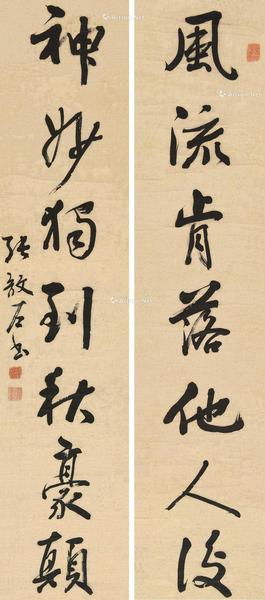 風流肯落他人後
神妙獨到秋豪顛
張啟后書